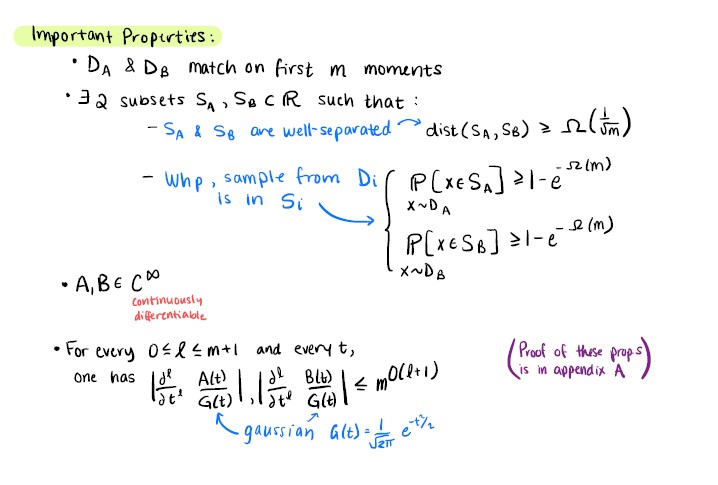 Important Properties:
• D_A & D_B match on first m moments
• ∃ 2 subsets S_A, S_B ⊂ ℝ such that:
- S_A & S_B are well-separated → dist(S_A, S_B) ≥ Ω(1/√m)
- Whp, sample from D_i is in S_i → { ℙ_{x~D_A}[x∈S_A] ≥ 1-e^{-Ω(m)}
ℙ_{x~D_B}[x∈S_B] ≥ 1-e^{-Ω(m)}
• A, B ∈ C^∞
continuously
differentiable
• For every 0 ≤ ℓ ≤ m+1 and every t,
one has |∂^ℓ/∂t^ℓ A(t)/G(t)|, |∂^ℓ/∂t^ℓ B(t)/G(t)| ≤ m^{O(ℓ+1)}
gaussian G(t) = 1/√2π e^{-t²/2}
(Proof of these props
is in appendix A)